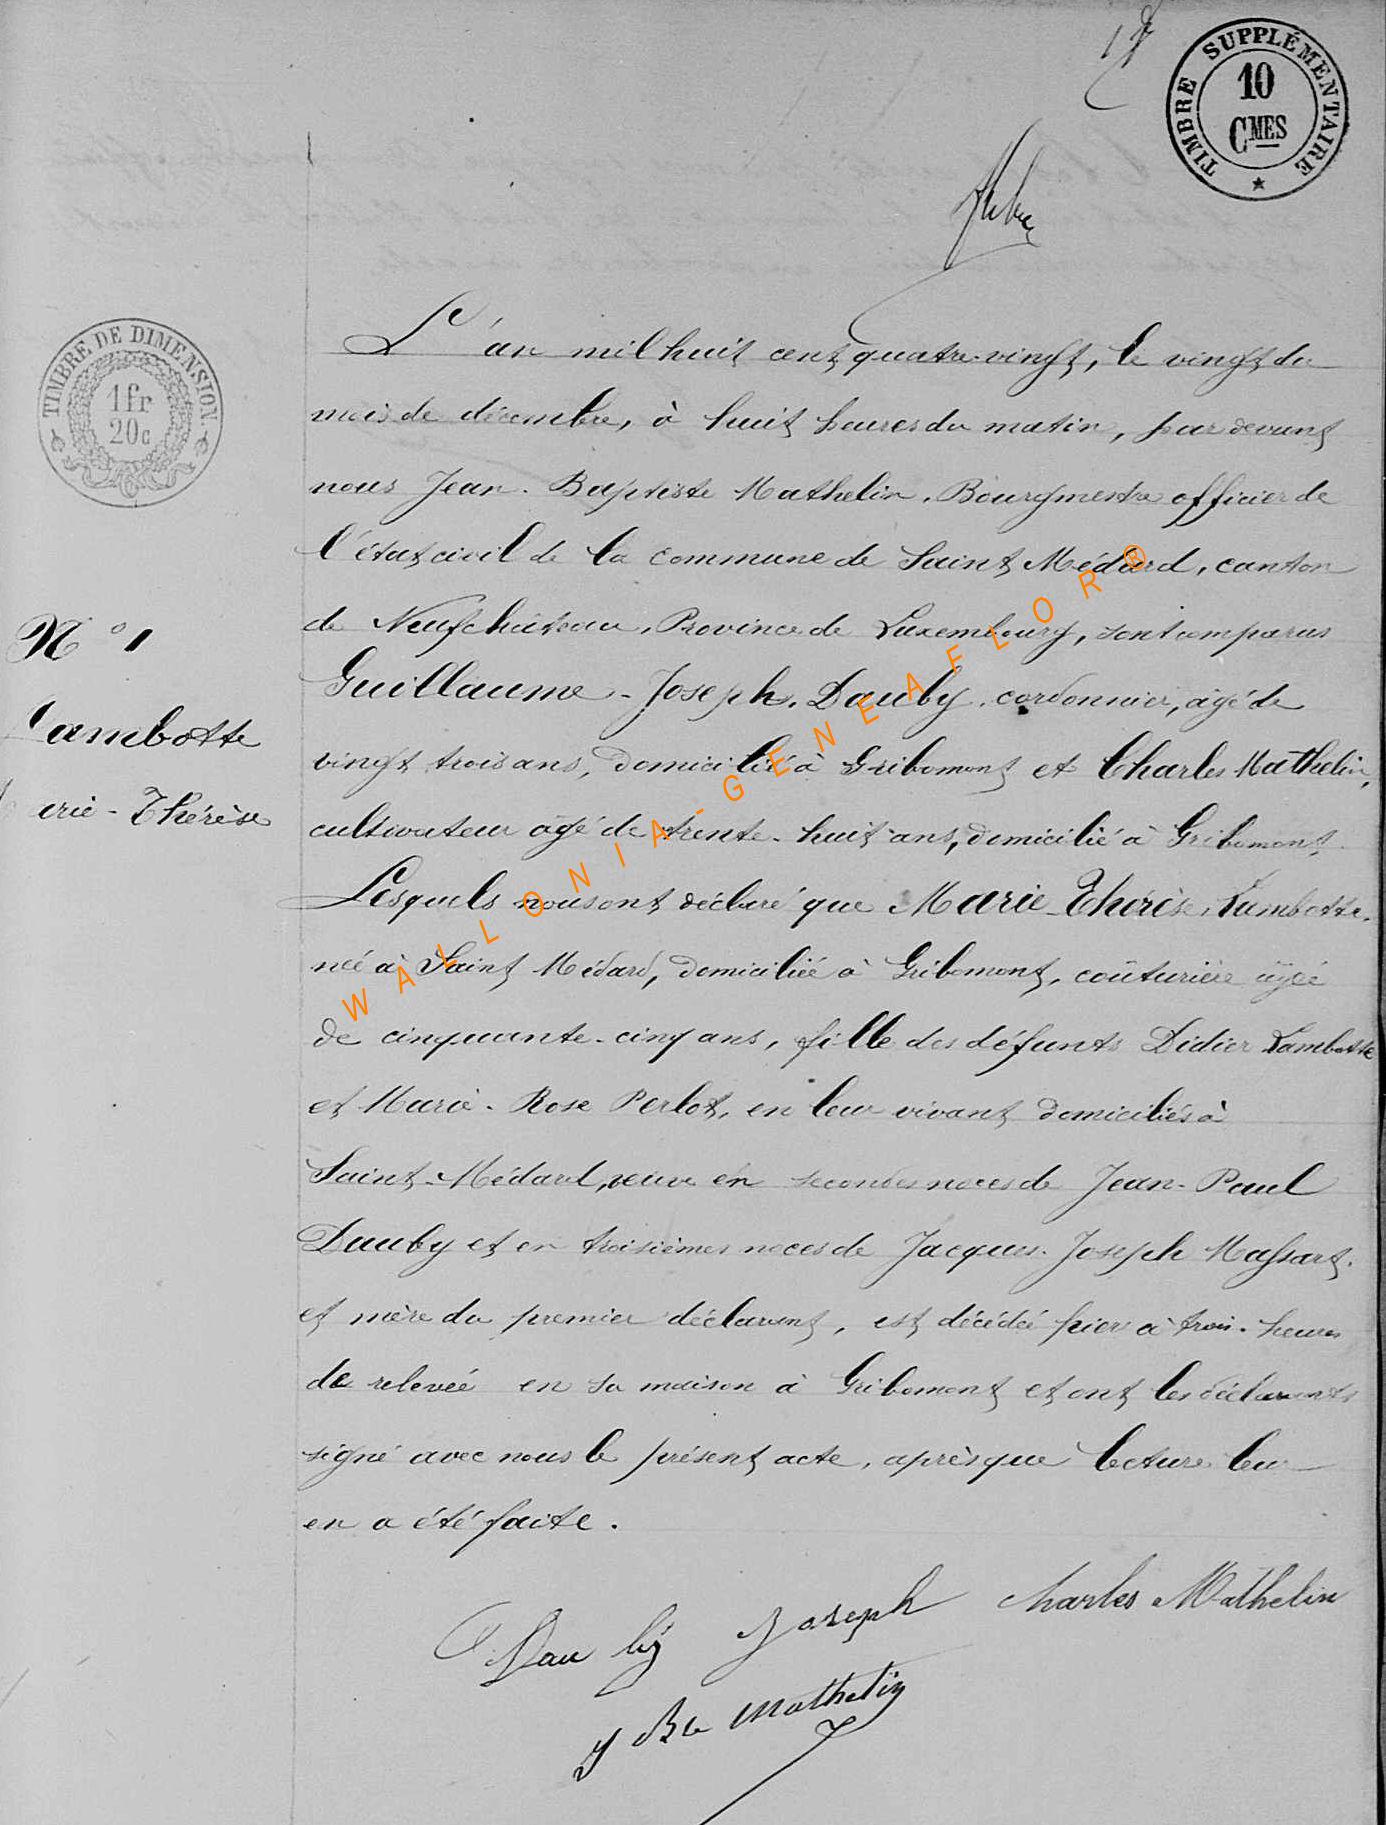 TIMBRE SUPPLÉMENTAIRE
10
CMES
TIMBRE DE DIMENSION
1fr
20c
L'an mil huit cent quatre-vingt, le vingt du
mois de décembre, à huit heures du matin, par devant
nous Jean-Baptiste Mathelin, Bourgmestre officier de
l'état civil de la commune de Saint Médard, canton
de Neufchâteau, Province de Luxembourg, sont comparus
Guillaume-Joseph Dauby, cordonnier, âgé de
vingt trois ans, domicilié à Gribomont et Charles Mathelin,
cultivateur âgé de trente-huit ans, domicilié à Gribomont,
Lesquels nous ont déclaré que Marie-Thérèse Lambotte,
née à Saint Médard, domiciliée à Gribomont, coûturière âgée
de cinquante-cinq ans, fille des défunts Didier Lambotte
et Marie-Rose Perlot, en leur vivant domiciliés à
Saint-Médard, veuve en secondes noces de Jean-Paul
Dauby et en troisièmes noces de Jacques-Joseph Massart,
et mère du premier déclarant, est décédée hier à trois heures
de relevée en sa maison à Gribomont et ont les déclarants
signé avec nous le présent acte, après que lecture leur
en a été faite.
N° 1
Lambotte
erie-Thérèse
Dauby Joseph Charles Mathelin
J Bte Mathelin
WALLONIA-GENEAFLOR®